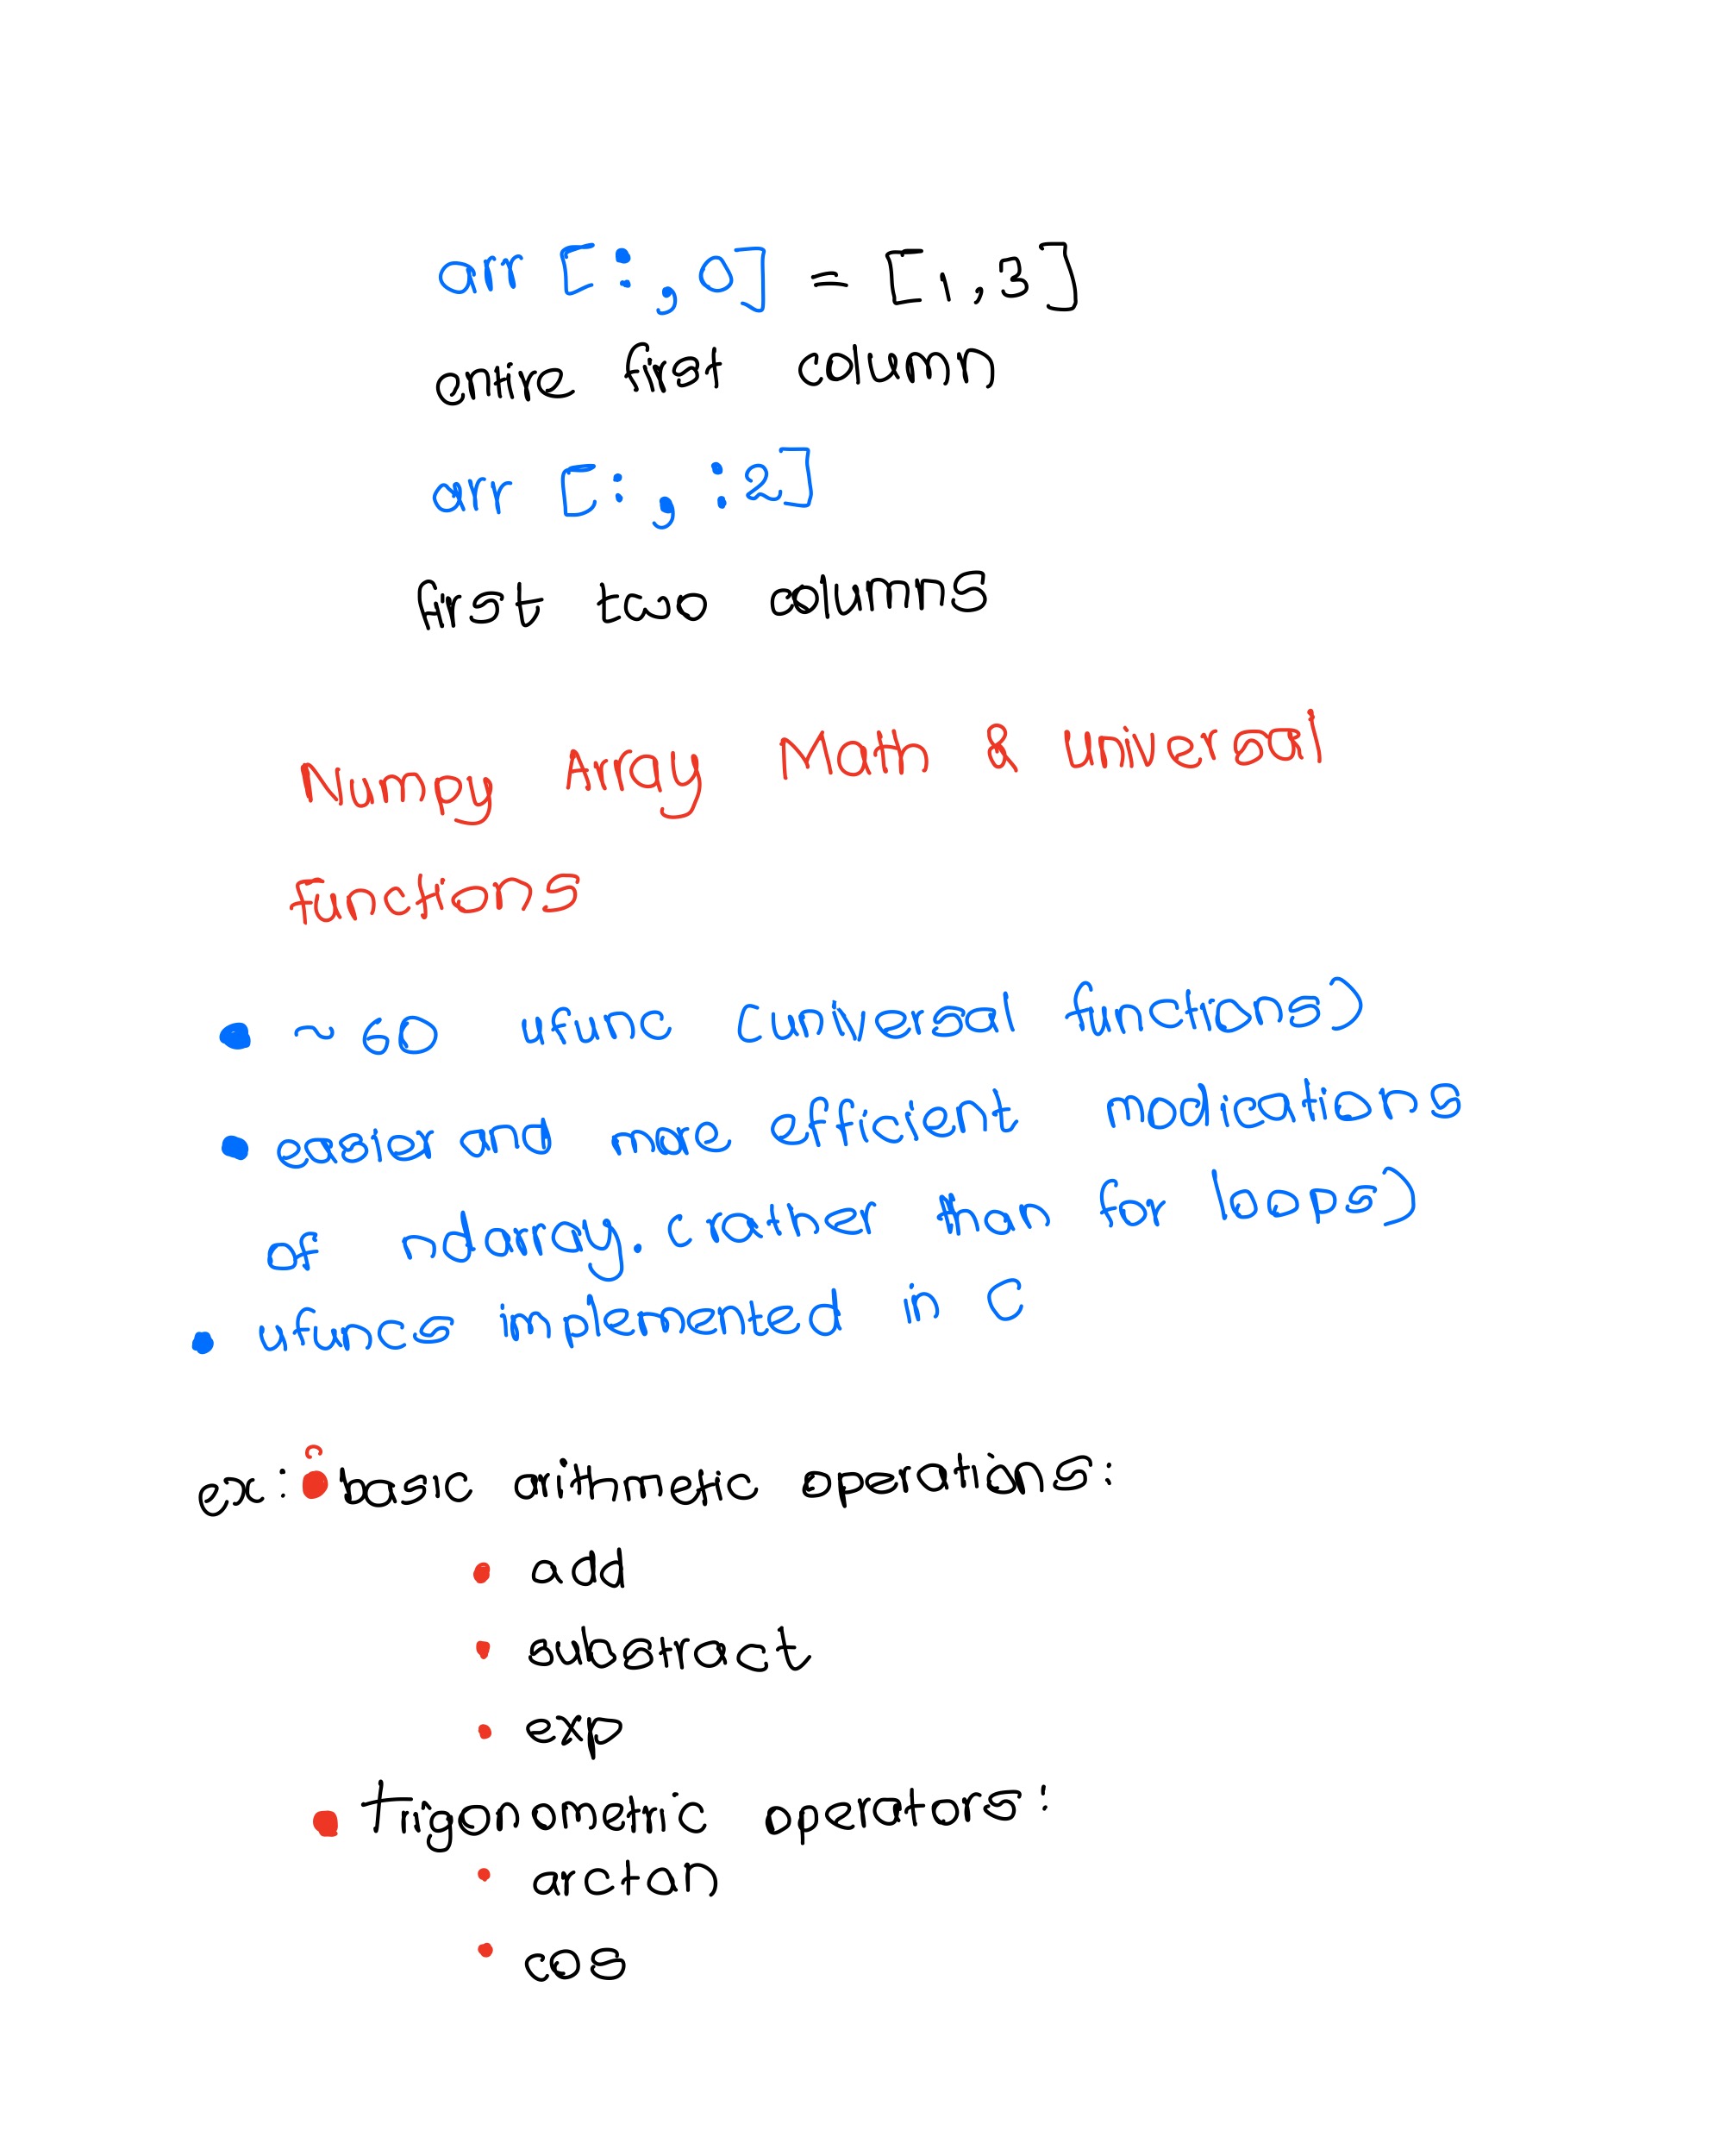 arr [:, 0] = [1,3]
entire first column
arr [:, :2]
first two columns
Numpy Array Math & Universal
functions
• ~ 60 ufunc (universal functions)
• easier and more efficient modications
of ndarray. (rather than for loops)
• ufuncs implemented in C
ex: • basic arithmetic operations:
• add
• substract
• exp
• trigonometric operators:
• arctan
• cos